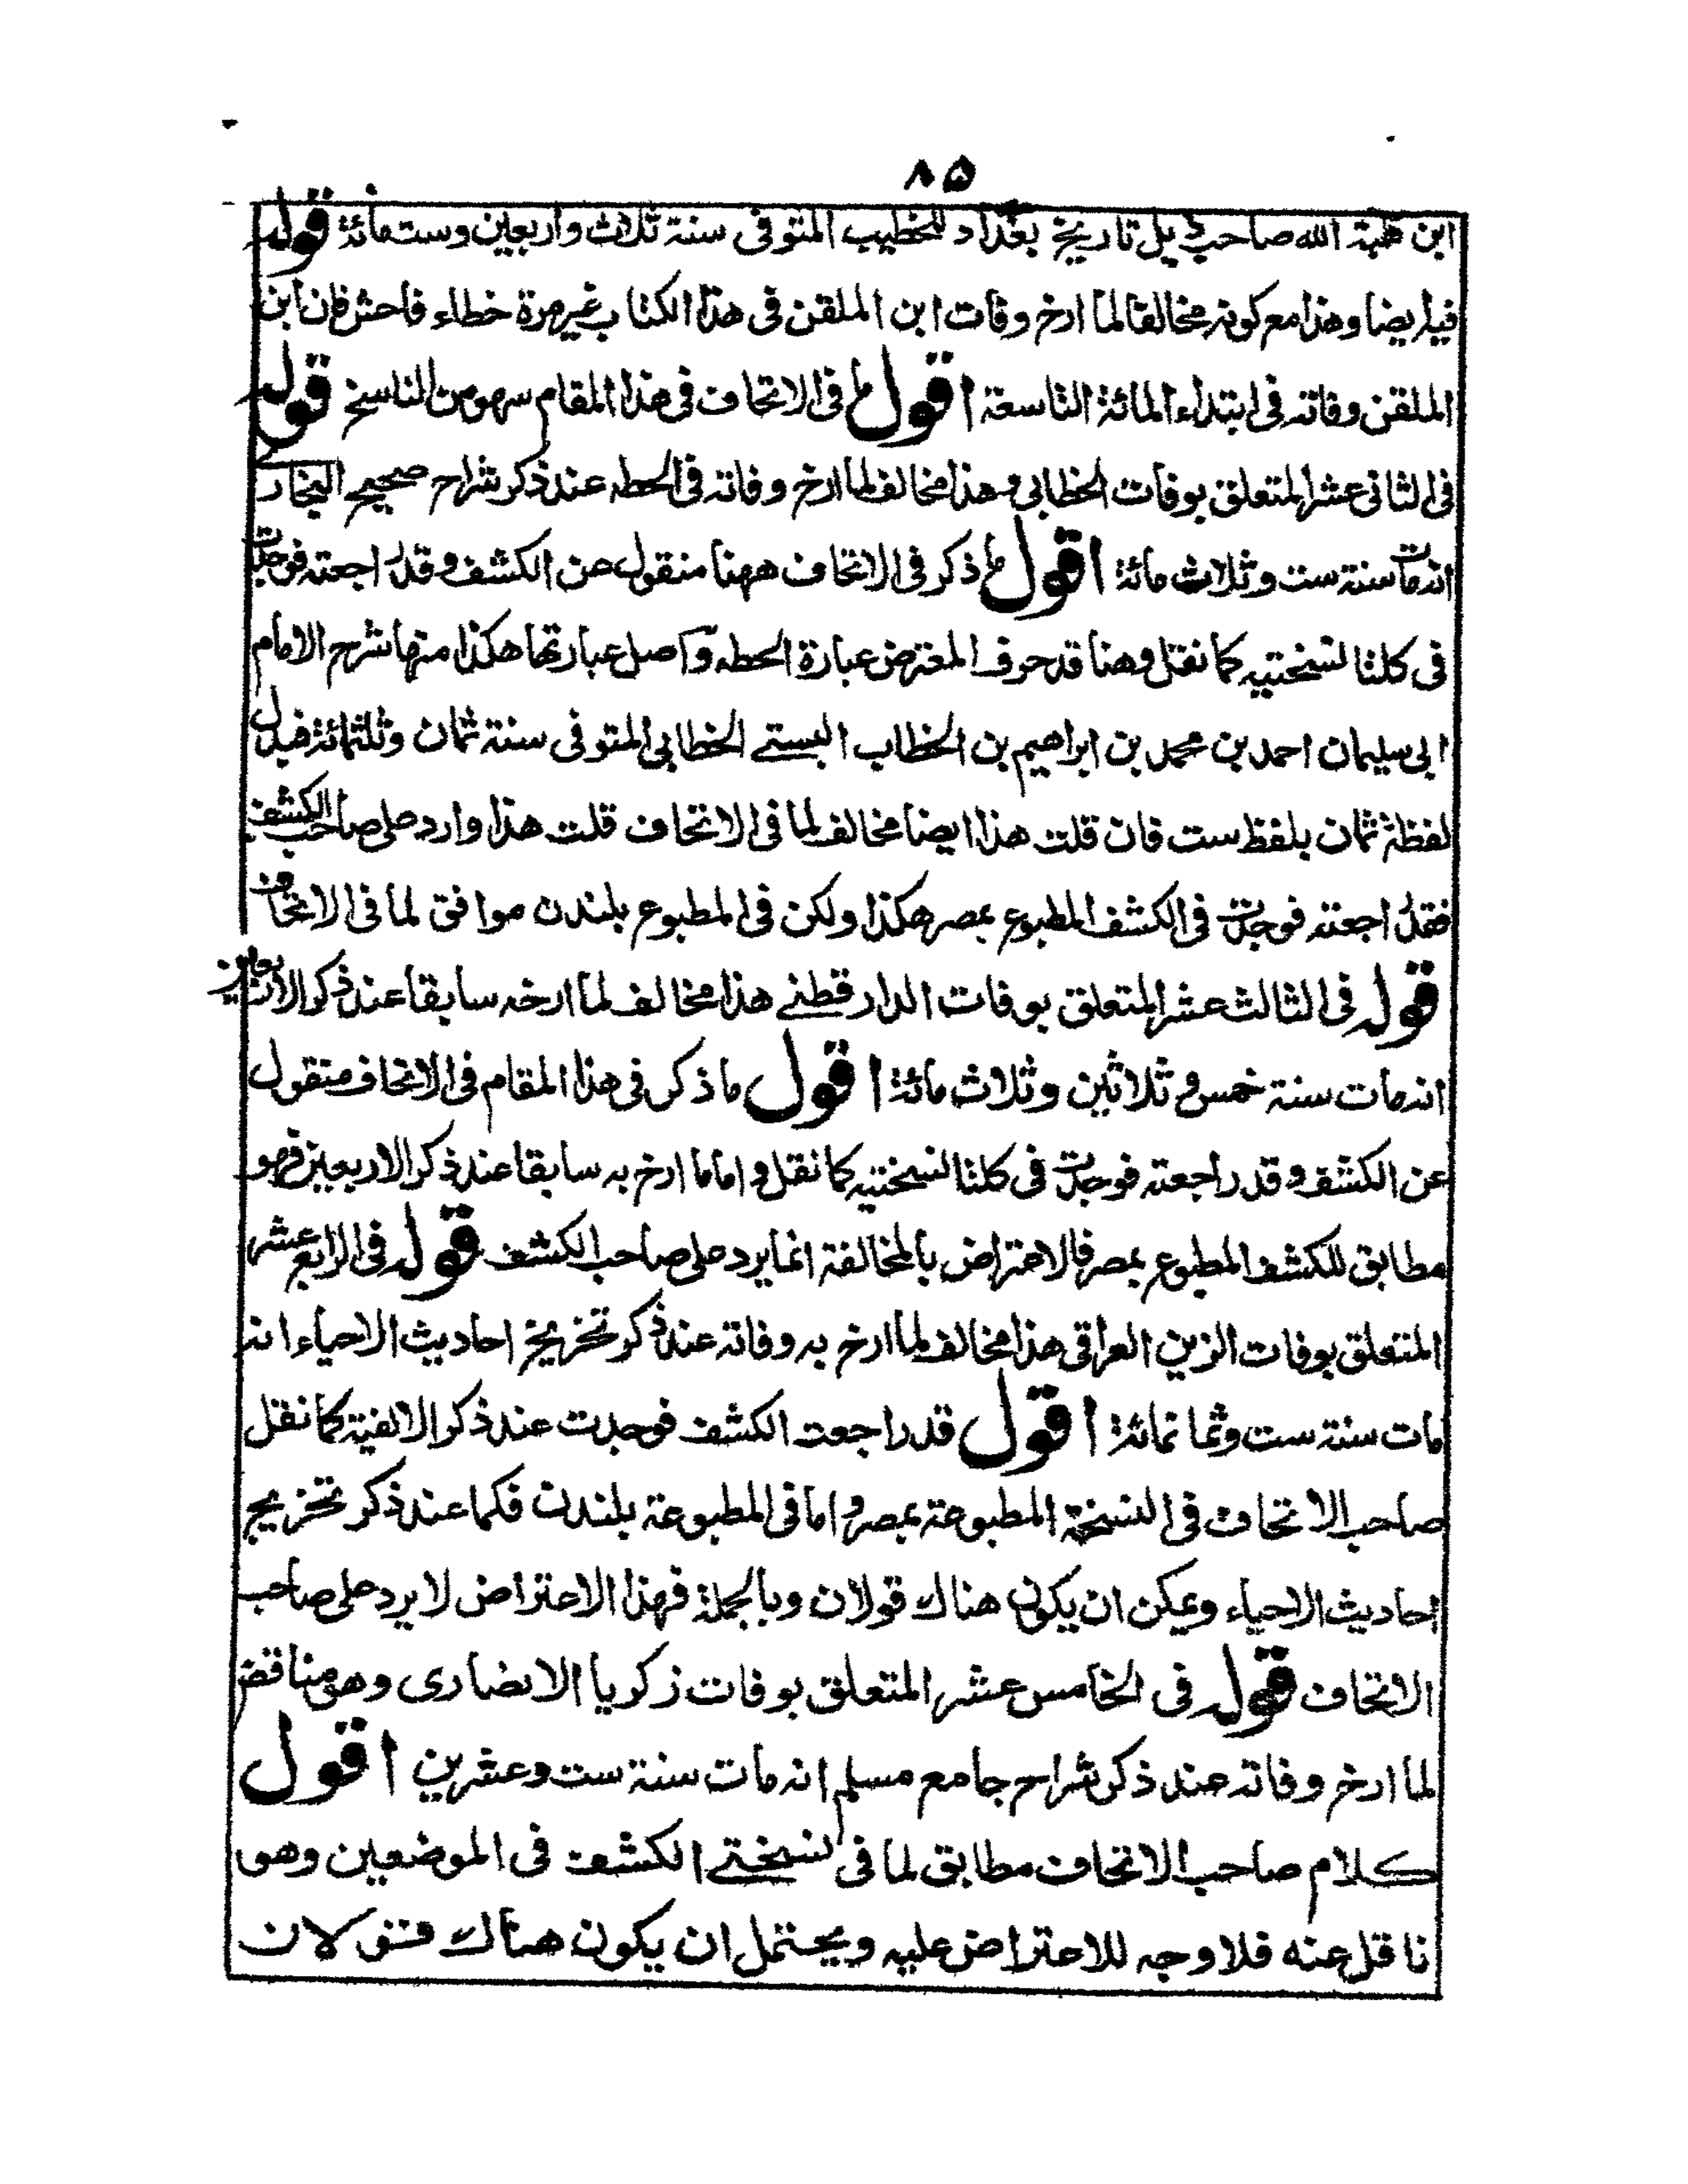 ۸۵
ابن هبة الله صاحب ذيل تاريخ بغداد للخطيب المتوفى سنة ثلاث واربعين وست مائة قوله
فيه ايضا وهذا مع كونه مخالفا لما ارخ وفات ابن الملقن فى هذا الكتاب غير مرة خطاء فاحش فان ابن
الملقن وفاته فى ابتداء المائة التاسعة اقول ما فى الاتحاف فى هذا المقام سهو من الناسخ قوله
فى الثانى عشر المتعلق بوفات الخطابى وهذا مخالف لما ارخ وفاته فى الحطه عند ذكر شراح صحيح البخارے
انه مات سنة ست وثلاث مائة اقول ما ذكر فى الاتحاف ههنا منقول عن الكشف وقد راجعته فوجدت
فى كلتا نسختيه كما نقل وهنا قد حرف المعترض عبارة الحطه وآصل عبارتها هكذا منها شرح الامام
ابى سليمان احمد بن محمد بن ابراهيم بن الخطاب البستے الخطابى المتوفى سنة ثمان وثلثمائة فبدل
لفظة ثمان بلفظ ست فان قلت هذا ايضا مخالف لما فى الاتحاف قلت هذا وارد على صاحب الكشف
فقد راجعته فوجدت فى الكشف المطبوع بمصر هكذا ولكن فى المطبوع بلندن موافق لما فى الاتحاف
قوله فى الثالث عشر المتعلق بوفات الدار قطنے هذا مخالف لما ارخه سابقا عند ذكر الاربعين
انه مات سنة خمس و ثلاثين وثلاث مائة اقول ما ذكر فى هذا المقام فى الاتحاف منقول
عن الكشف وقد راجعته فوجدت فى كلتا نسختيه كما نقل و اما ما ارخ به سابقا عند ذكر الاربعين فهو
مطابق للكشف المطبوع بمصر فالاعتراض بالمخالفة انما يرد على صاحب الكشف قوله فى الرابع عشر
المتعلق بوفات الزين العراقى هذا مخالف لما ارخ به وفاته عند ذكر تخريج احاديث الاحياء انه
مات سنة ست وثما نمائة اقول قد راجعت الكشف فوجدت عند ذكر الالفية كما نقل
صاحب الاتحاف فى النسخة المطبوعة بمصر و اما فى المطبوعة بلندن فكما عند ذكر تخريج
احاديث الاحياء ويمكن ان يكون هناك قولان وبالجملة فهذا الاعتراض لا يرد على صاحب
الاتحاف قوله فى الخامس عشر المتعلق بوفات زكريا الانصارى وهو مناقض
لما ارخ وفاته عند ذكر شراح جامع مسلم انه مات سنة ست وعشرين اقول
كلام صاحب الاتحاف مطابق لما فى نسختے الكشف فى الموضعين وهو
ناقل عنه فلا وجه للاعتراض عليه ويحتمل ان يكون هناك قولان